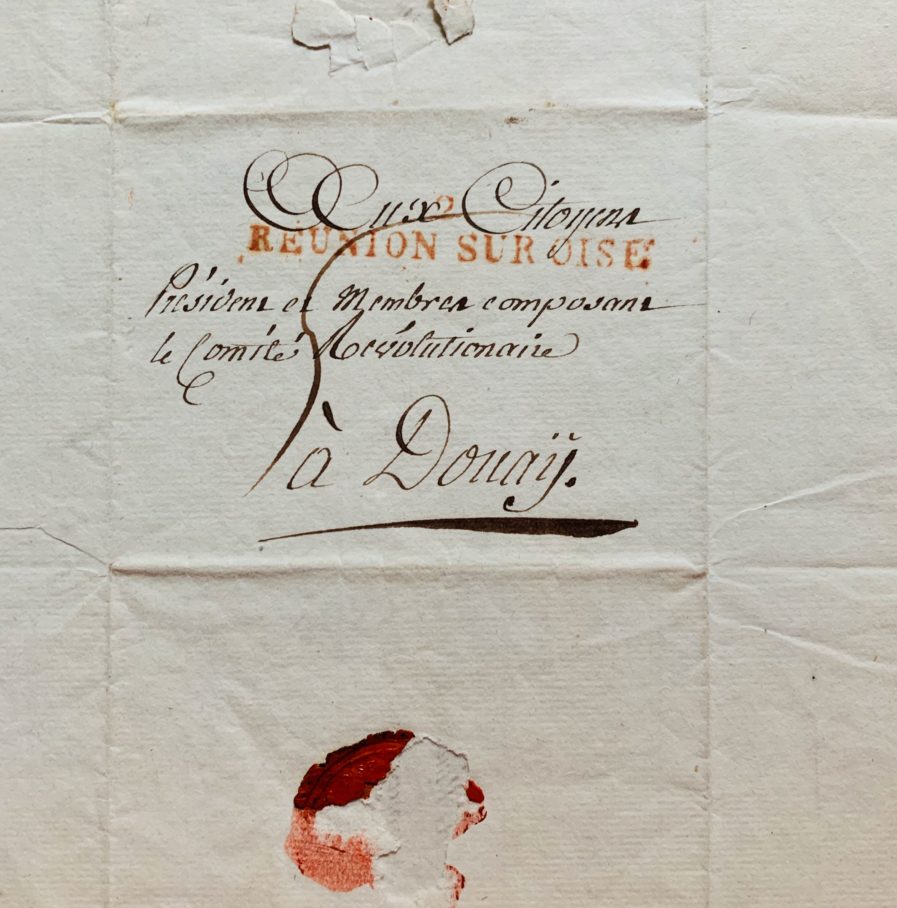 Aux Citoyens
2
RÉUNION SUR OISE
Président et Membres composant
le Comité Revolutionaire
à Douaÿ.
5